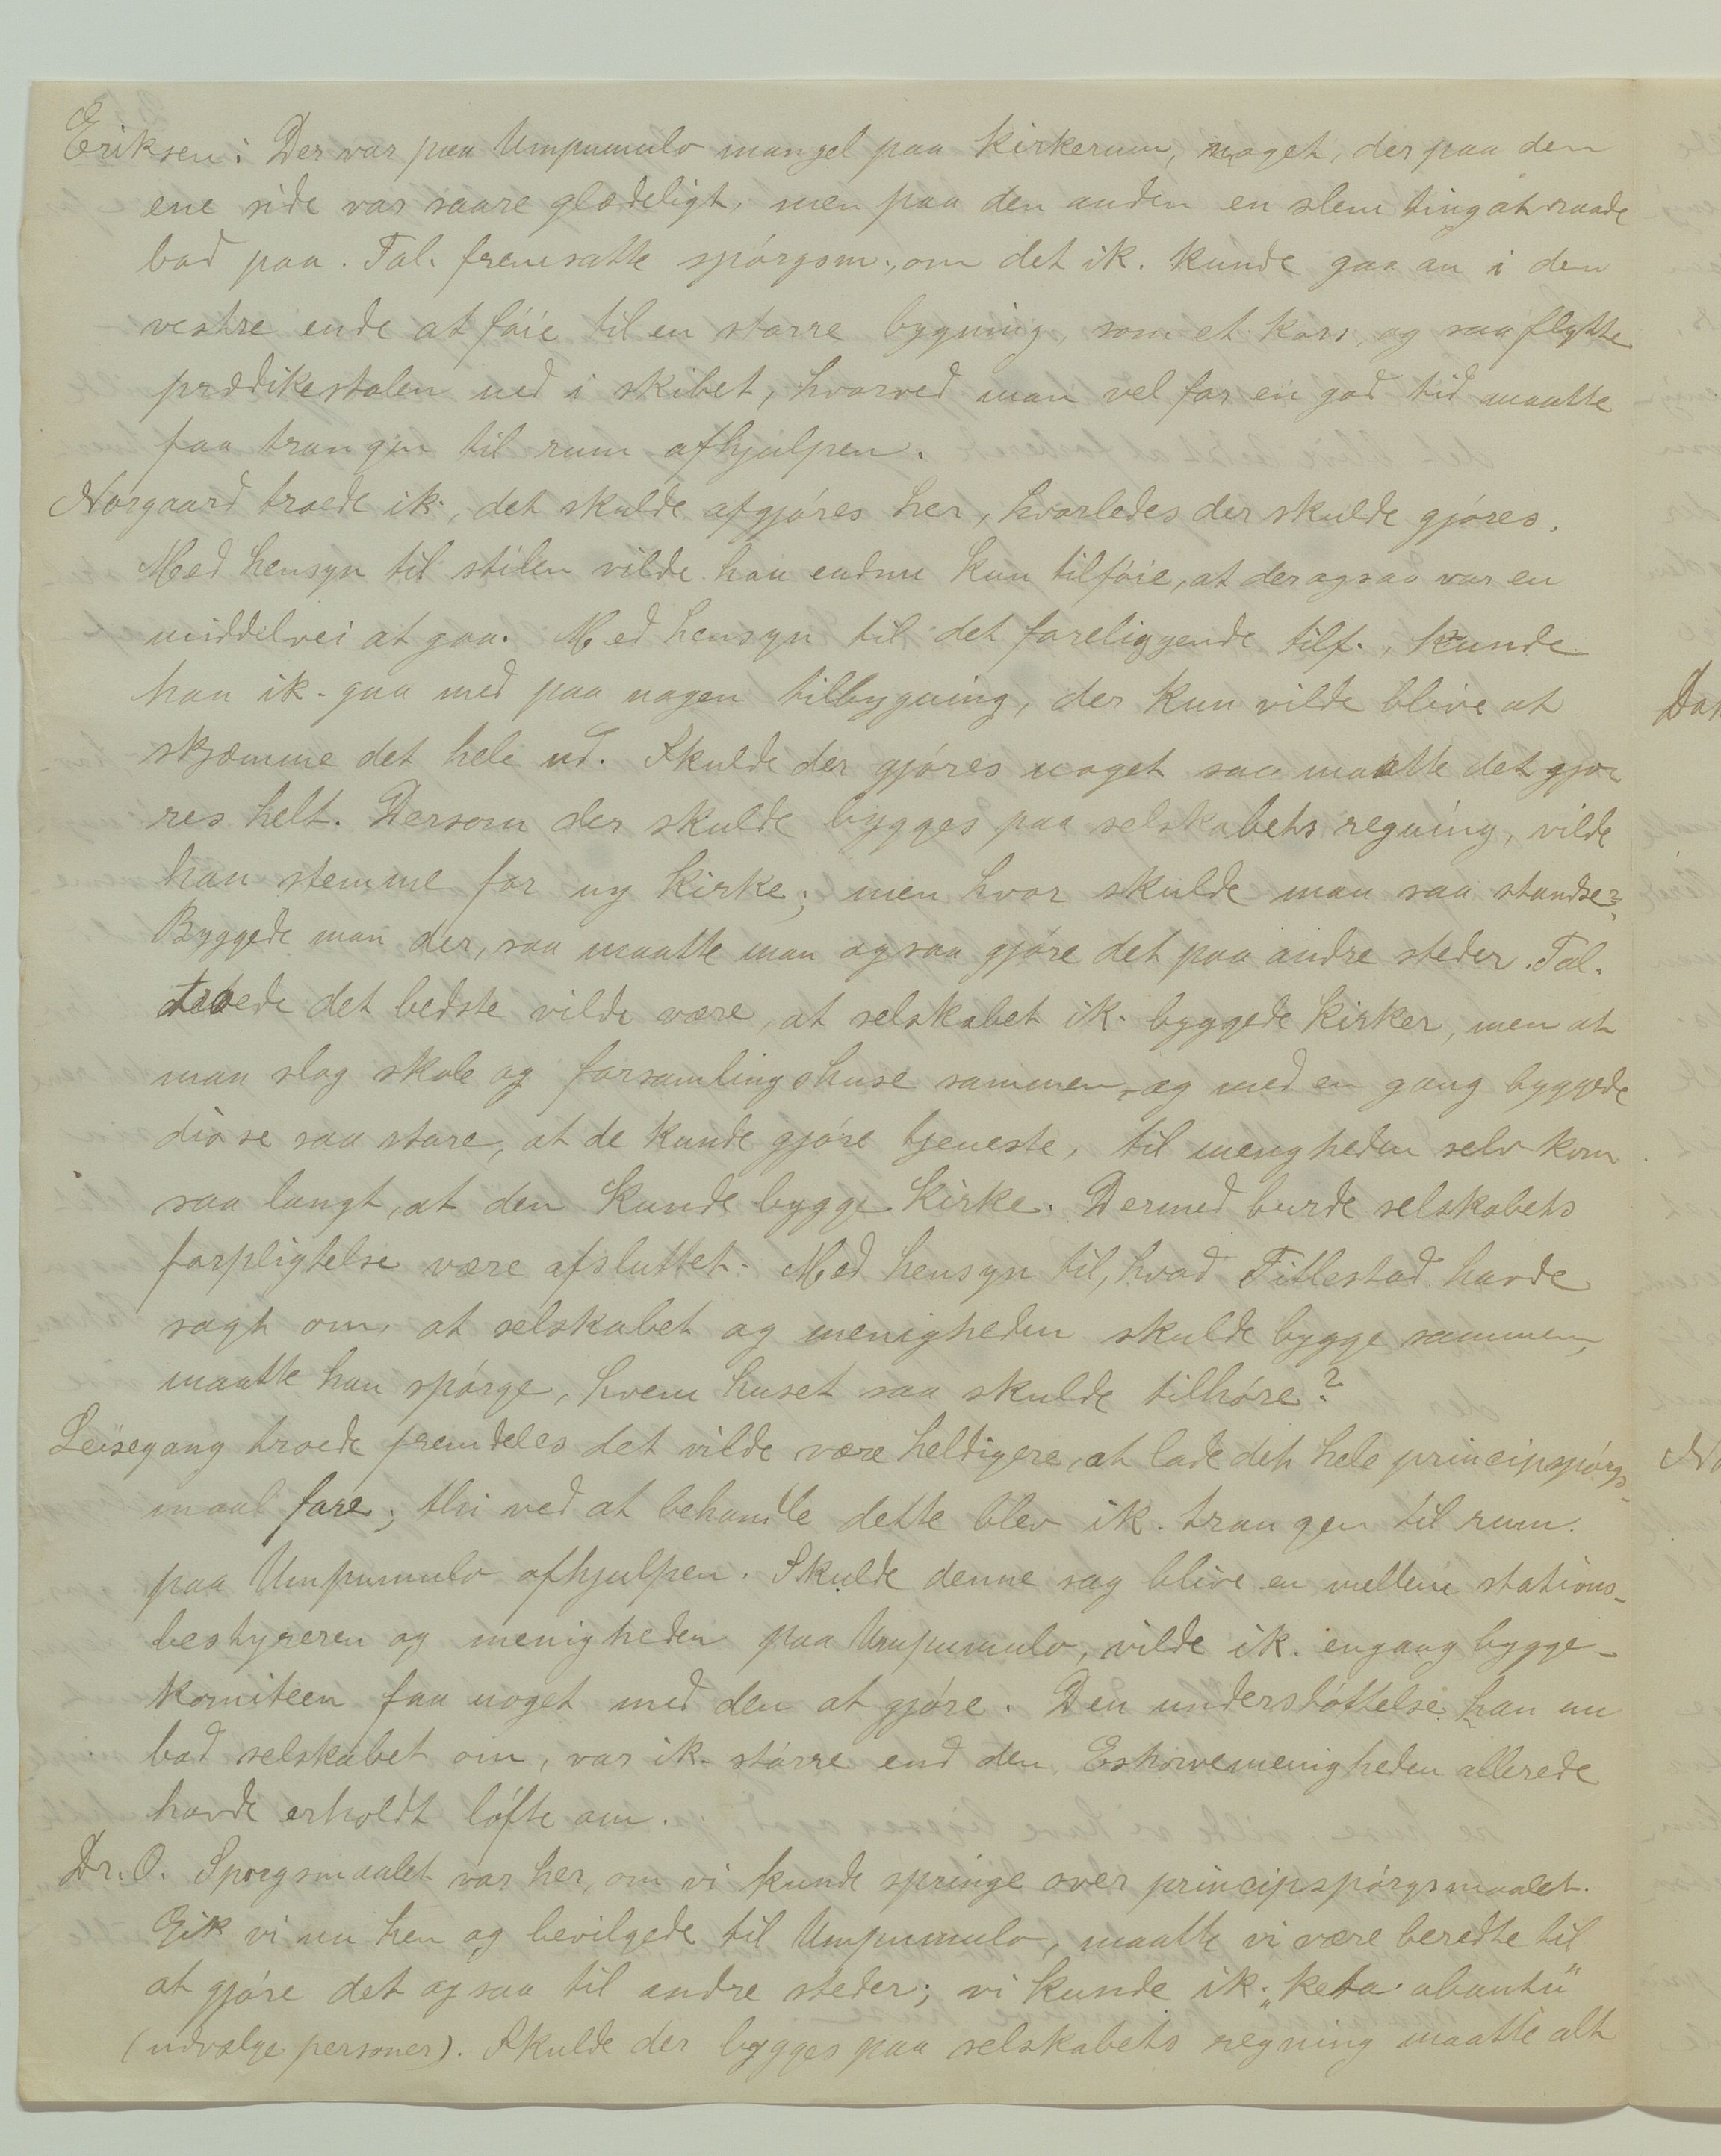 Eriksen: Der var paa Umpumulo mangel paa kirkerum, noget, der paa den
ene side var saare glædeligt, men paa den anden en slem ting at raade
bod paa. Tal. fremsatte spórgsm., om det ik. kunde gaa an i den
vestre ende at fóie til en større bygning, som et kors, og saa flytte
prædikestolen ned i skibet, hvorved man vel for en god tid maatte
faa trangen til rum afhjulpen.
Norgaard troede ik., det skulde afgjóres her, hvorledes der skulde gjóres.
Med hensyn til stilen vilde han endnu kun tilfóie, at der ogsaa var en
middelvei at gaa. Med hensyn til det foreliggende tilf., kunde
han ik. gaa med paa nogen tilbygning, der kun vilde blive at
skjæmme det hele ud. Skulde der gjóres noget saa maatte det gjó-
res helt. Dersom der skulde bygges paa selskabets regning, vilde
han stemme for ny kirke; men hvor skulde man saa standse?
Byggede man der, saa maatte man ogsaa gjóre det paa andre steder. Tal.
troede det bedste vilde være, at selskabet ik. byggede kirker, men at
man slog skole og forsamlingshuse sammen, og med en gang byggede
disse saa store, at de kunde gjóre tjeneste, til menigheden selv kom
saa langt, at den kunde bygge kirke. Dermed burde selskabets
forpligtelse være afsluttet. Med hensyn til, hvad Titlestad havde
sagt om, at selskabet og menigheden skulde bygge sammen,
maatte han spórge, hvem huset saa skulde tilhóre?
Leisegang troede fremdeles det vilde være heldigere, at lade det hele principspórgs-
maal fare; thi ved at behandle dette blev ik. trangen til rum
paa Umpumulo afhjulpen. Skulde denne sag blive en mellem stations-
bestyreren og menigheden paa Umpumulo, vilde ik. engang bygge-
komiteen faa noget med den at gjóre. Den understóttelse han nu
bad selskabet om, var ik. stórre end den Eshowemenigheden allerede
havde erholdt lófte om.
Dr. O. Sporgsmaalet var her, om vi kunde springe over principspórgsmaalet.
Gik vi nu hen og bevilgede til Umpumulo, maatte vi være beredte til
at gjóre det ogsaa til andre steder; vi kunde ik. „keta abantu"
(udvælge personer). Skulde der bygges paa selskabets regning maatte alt